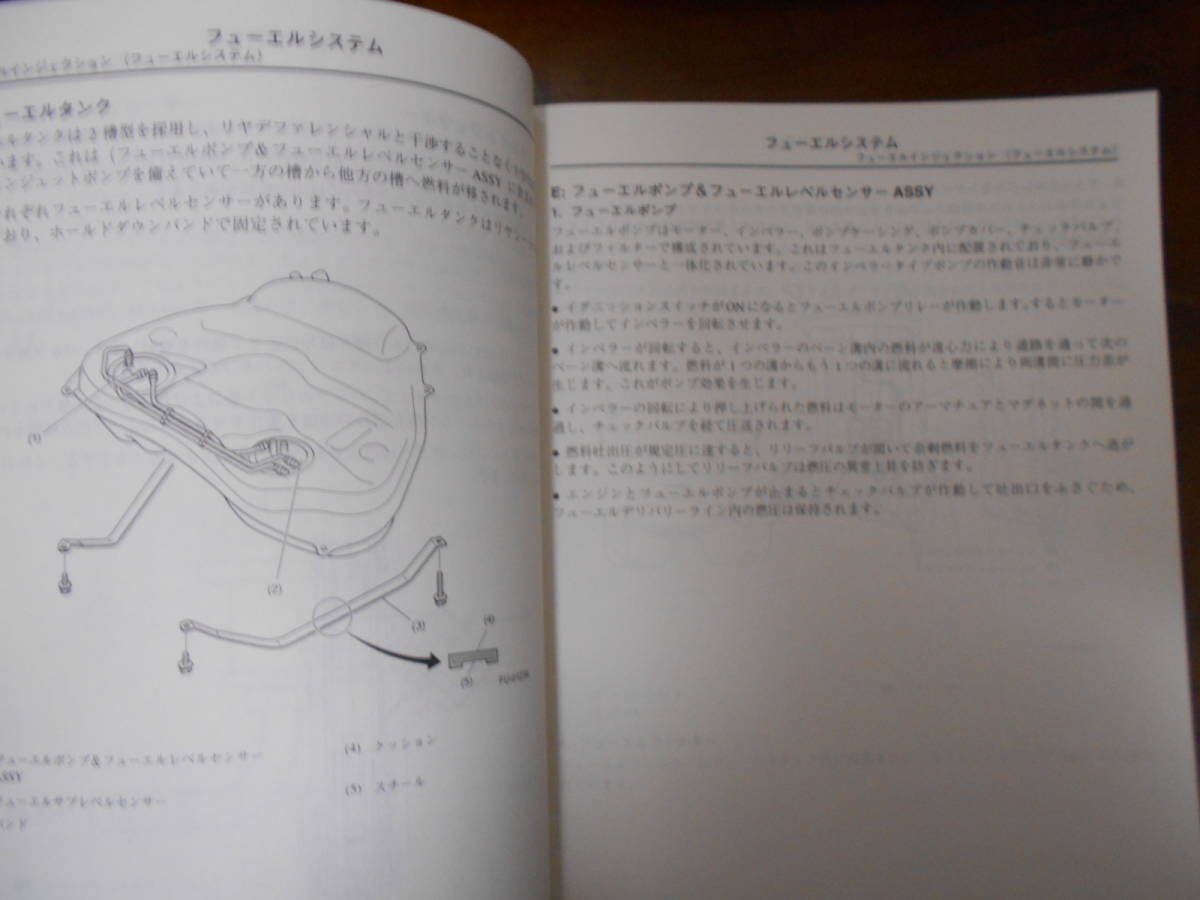 フューエルシステム
ルインジェクション（フューエルシステム）
ーエルタンク
エルタンクは2槽型を採用し、リヤデファレンシャルと干渉することなく
います。これは（フューエルポンプ＆フューエルレベルセンサー ASSY に
ンジェットポンプを備えていて一方の槽から他方の槽へ燃料が移されます。
れぞれフューエルレベルセンサーがあります。フューエルタンクはリヤシー
おり、ホールドダウンバンドで固定されています。
(1)
(2)
(3)
(4)
(5)
フューエルポンプ＆フューエルレベルセンサー
ASSY
フューエルサブレベルセンサー
バンド
(4) クッション
(5) スチール
フューエルシステム
フューエルインジェクション（フューエルシステム）
E: フューエルポンプ＆フューエルレベルセンサー ASSY
1. フューエルポンプ
フューエルポンプはモーター、インペラー、ポンプケーシング、ポンプカバー、チェックバルブ、
およびフィルターで構成されています。これはフューエルタンク内に配置されており、フューエ
ルレベルセンサーと一体化されています。このインペラータイプポンプの作動音は非常に静かで
す。
● イグニッションスイッチがONになるとフューエルポンプリレーが作動します。するとモーター
が作動してインペラーを回転させます。
● インペラーが回転すると、インペラーのベーン溝内の燃料が遠心力により通路を通って次の
ベーン溝へ流れます。燃料が1つの溝からもう1つの溝に流れると摩擦により両溝間に圧力差が
生じます。これがポンプ効果を生じます。
● インペラーの回転により押し上げられた燃料はモーターのアーマチュアとマグネットの間を通
過し、チェックバルブを経て圧送されます。
● 燃料吐出圧が規定圧に達すると、リリーフバルブが開いて余剰燃料をフューエルタンクへ逃が
します。このようにしてリリーフバルブは燃圧の異常上昇を防ぎます。
● エンジンとフューエルポンプが止まるとチェックバルブが作動して吐出口をふさぐため、
フューエルデリバリーライン内の燃圧は保持されます。